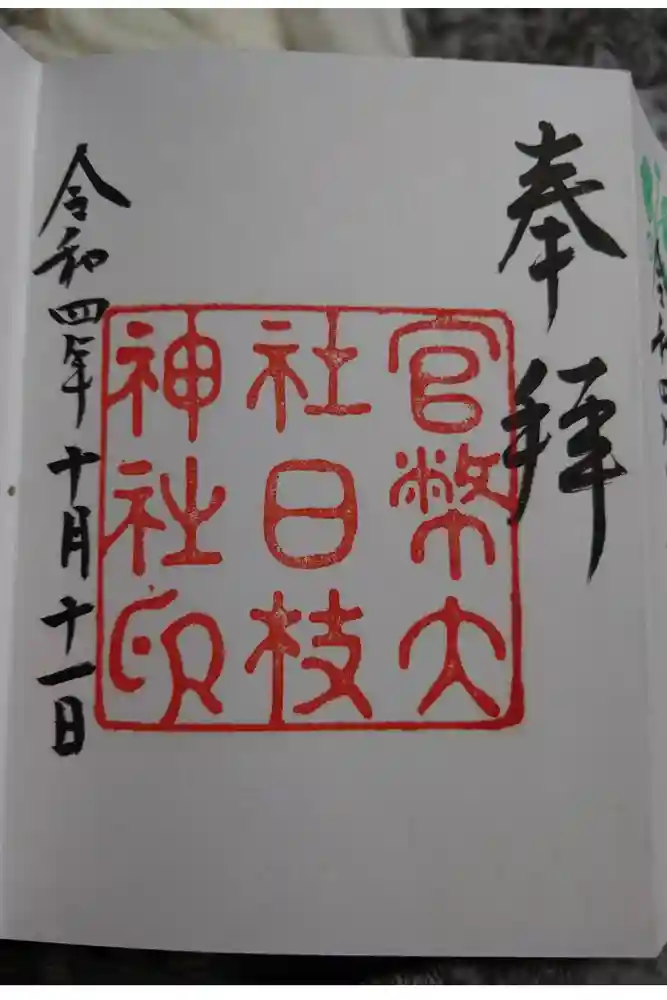 奉拜
官幣大
社日枝
神社印
令和四年十月十一日